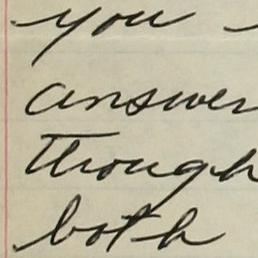 you
answer
though
both